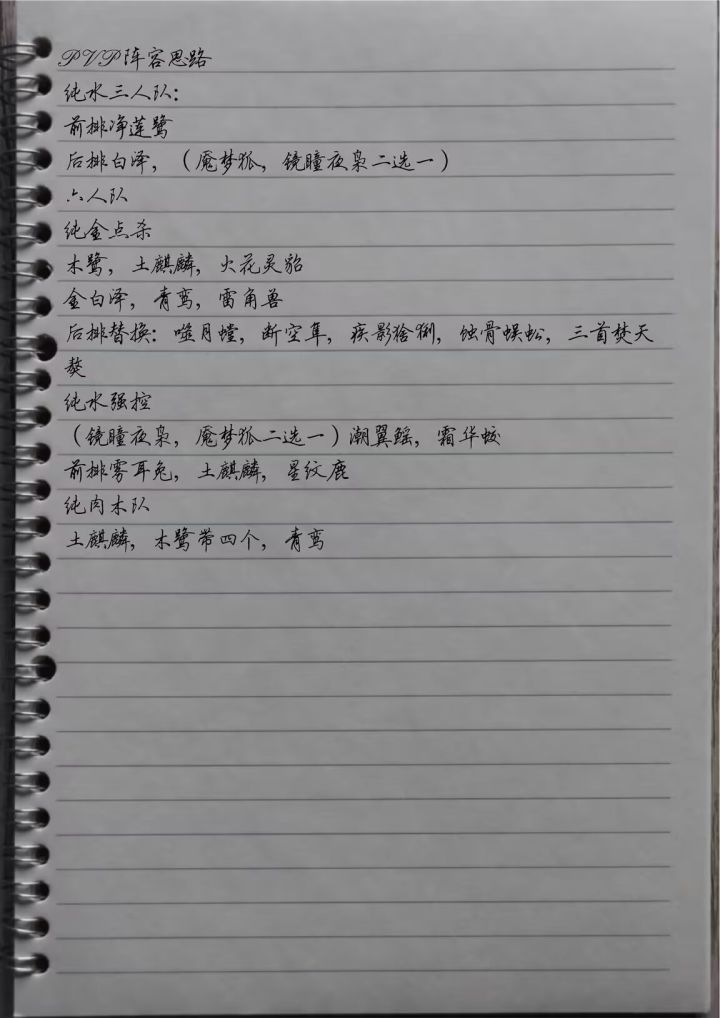 PVP阵容思路
纯水三人队：
前排净莲鹭
后排白泽，（魇梦狐，镜瞳夜枭二选一）
六人队
纯金点杀
木鹭，土麒麟，火花灵貂
金白泽，青鸾，雷角兽
后排替换：噬月螳，断空隼，疾影猞猁，蚀骨蜈蚣，三首焚天
獒
纯水强控
（镜瞳夜枭，魇梦狐二选一）潮翼鳐，霜华蛟
前排雾耳兔，土麒麟，星纹鹿
纯肉木队
土麒麟，木鹭带四个，青鸾